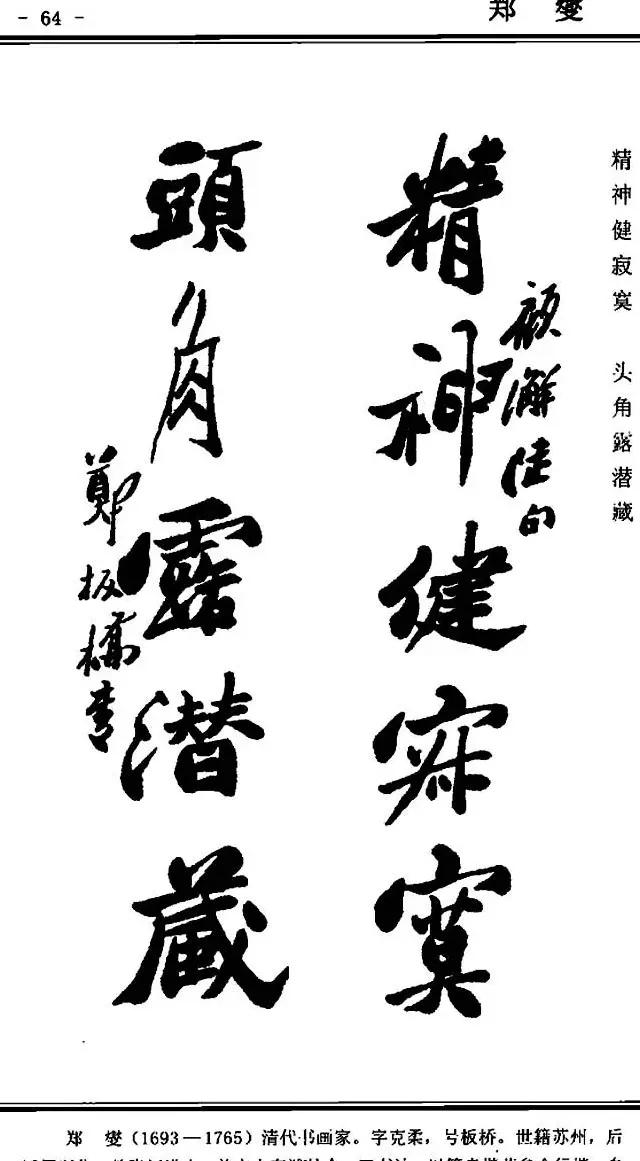 - 64 -
郑 燮
精神健寂寞 头角露潜藏
精神健寂寞
顾澥陆句
頭角露潜藏
鄭板橋書
郑 燮（1693—1765）清代书画家。字克柔，号板桥。世籍苏州，后